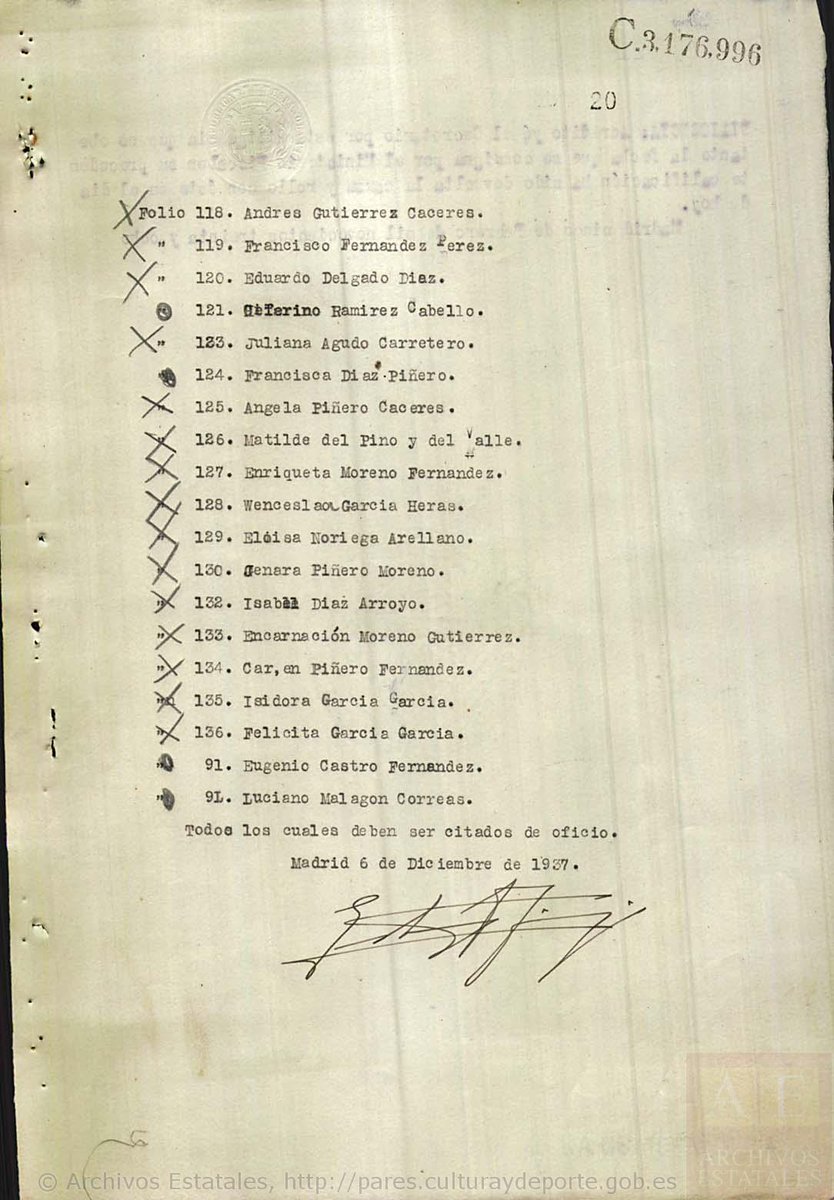 C.3.176,996
20
Folio 118. Andres Gutierrez Caceres.
" 119. Francisco Fernandez Perez.
" 120. Eduardo Delgado Diaz.
121. Ceferino Ramirez Cabello.
" 123. Juliana Agudo Carretero.
124. Francisca Diaz Piñero.
" 125. Angela Piñero Caceres.
" 126. Matilde del Pino y del Valle.
" 127. Enriqueta Moreno Fernandez.
" 128. Wenceslao Garcia Heras.
" 129. Eloisa Noriega Arellano.
" 130. Genara Piñero Moreno.
" 132. Isabel Diaz Arroyo.
" 133. Encarnación Moreno Gutierrez.
" 134. Car,en Piñero Fernandez.
" 135. Isidora Garcia Garcia.
" 136. Felicita Garcia Garcia.
" 91. Eugenio Castro Fernandez.
" 9L. Luciano Malagon Correas.
Todos los cuales deben ser citados de oficio.
Madrid 6 de Diciembre de 1937.
AE
ARCHIVOS
ESTATALES
© Archivos Estatales, http://pares.culturaydeporte.gob.es